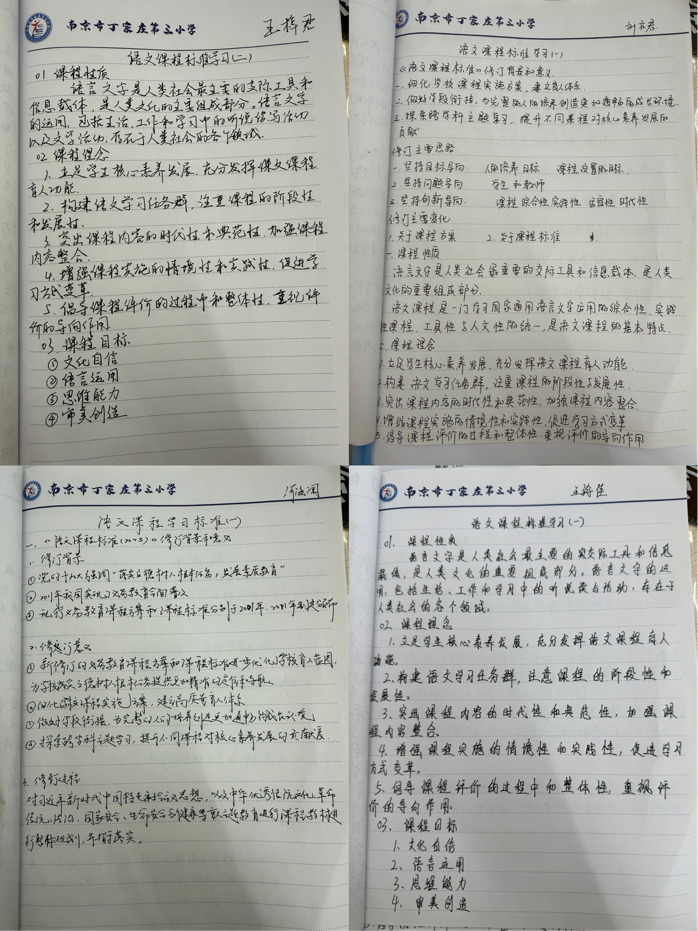 南京市丁家庄第三小学
语文课程标准学习(二)
01 课程性质
语言文字是人类社会最主要的交际工具和
信息载体，是人类文化的重要组成部分。语言文字
的运用，包括生活、工作和学习中的听说读写活动
以及文学活动，存在于人类社会的各个领域。
02 课程理念
1. 立足学生核心素养发展，充分发挥课文课程
育人功能。
2. 构建语文学习任务群，注重课程的阶段性
和发展性。
3. 突出课程内容的时代性和典范性，加强课程
内容整合。
4. 增强课程实施的情境性和实践性，促进学
习方式变革。
5. 倡导课程评价的过程中和整体性，重视评
价的导向作用
03. 课程目标
① 文化自信
② 语言运用
③ 思维能力
④ 审美创造
南京市丁家庄第三小学
语文课程标准学习(一)
《语文课程标准》修订背景和意义.
一. 细化学校课程实施方案，建立育人体系.
二. 做好学段衔接，为完整的人的培养创造更加
三. 探索跨学科主题学习，提升不同课程对核心素养发展的
贡献
修订主要思路
一. 坚持目标导向. 人的培养目标 课程设置的目标.
2. 坚持问题导向 学生和教师
三. 坚持创新导向. 课程综合性实践性 时代性
修订主要变化
1. 关于课程方案 2. 关于课程标准
一. 课程性质
语言文字是人类社会最重要的交际工具和信息载体，是人类
文化的重要组成部分.
语文课程是一门学习国家通用语言文字运用的综合性、实践
性课程. 工具性与人文性的统一，是语文课程的基本特点.
二. 课程理念
1. 立足学生核心素养发展，充分发挥语文课程育人功能.
2. 构建语文学习任务群，注重课程的阶段性与发展性.
3. 突出课程内容的时代性和典范性，加强课程内容整合.
4. 增强课程实施的情境性和实践性，促进学习方式变革
5. 倡导课程评价的过程和整体性，重视评价的导向作用
南京市丁家庄第三小学
语文课程学习标准(一)
一、《语文课程标准(2022)》修订背景和意义
1. 修订背景
2. 修订意义
① 新修订的义务教育课程方案和课程标准进一步优化了学校育人蓝图，
② 细化学校课程实施方案，建立高质量育人体系
④ 探索跨学科主题学习，提升不同课程对核心素养发展的贡献.
3. 修订过程
南京市丁家庄第三小学
语文课程标准学习(一)
01. 课程性质
语言文字是人类社会最主要的交际工具和信息
载体，是人类文化的重要组成部分。语言文字的运
用，包括生活、工作和学习中的听说读写活动，存在于
人类社会的各个领域。
02 课程理念
1. 立足学生核心素养发展，充分发挥语文课程育人
功能。
2. 构建语文学习任务群，注意课程的阶段性和
发展性。
3. 突出课程内容的时代性和典范性，加强课
程内容整合。
4. 增强课程实施的情境性和实践性，促进学习
方式变革。
5. 倡导课程评价的过程中和整体性，重视评
价的导向作用。
03. 课程目标
1. 文化自信
2. 语言运用
3. 思维能力
4. 审美创造